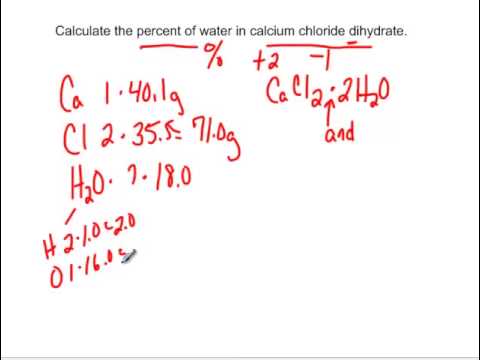 Calculate the percent of water in calcium chloride dihydrate.
%
+2 −1
Ca 1·40.1g
CaCl₂·2H₂O
Cl 2·35.5= 71.0g
and
H₂O· 2·18.0
H 2·1.0= 2.0
O 1·16.0=